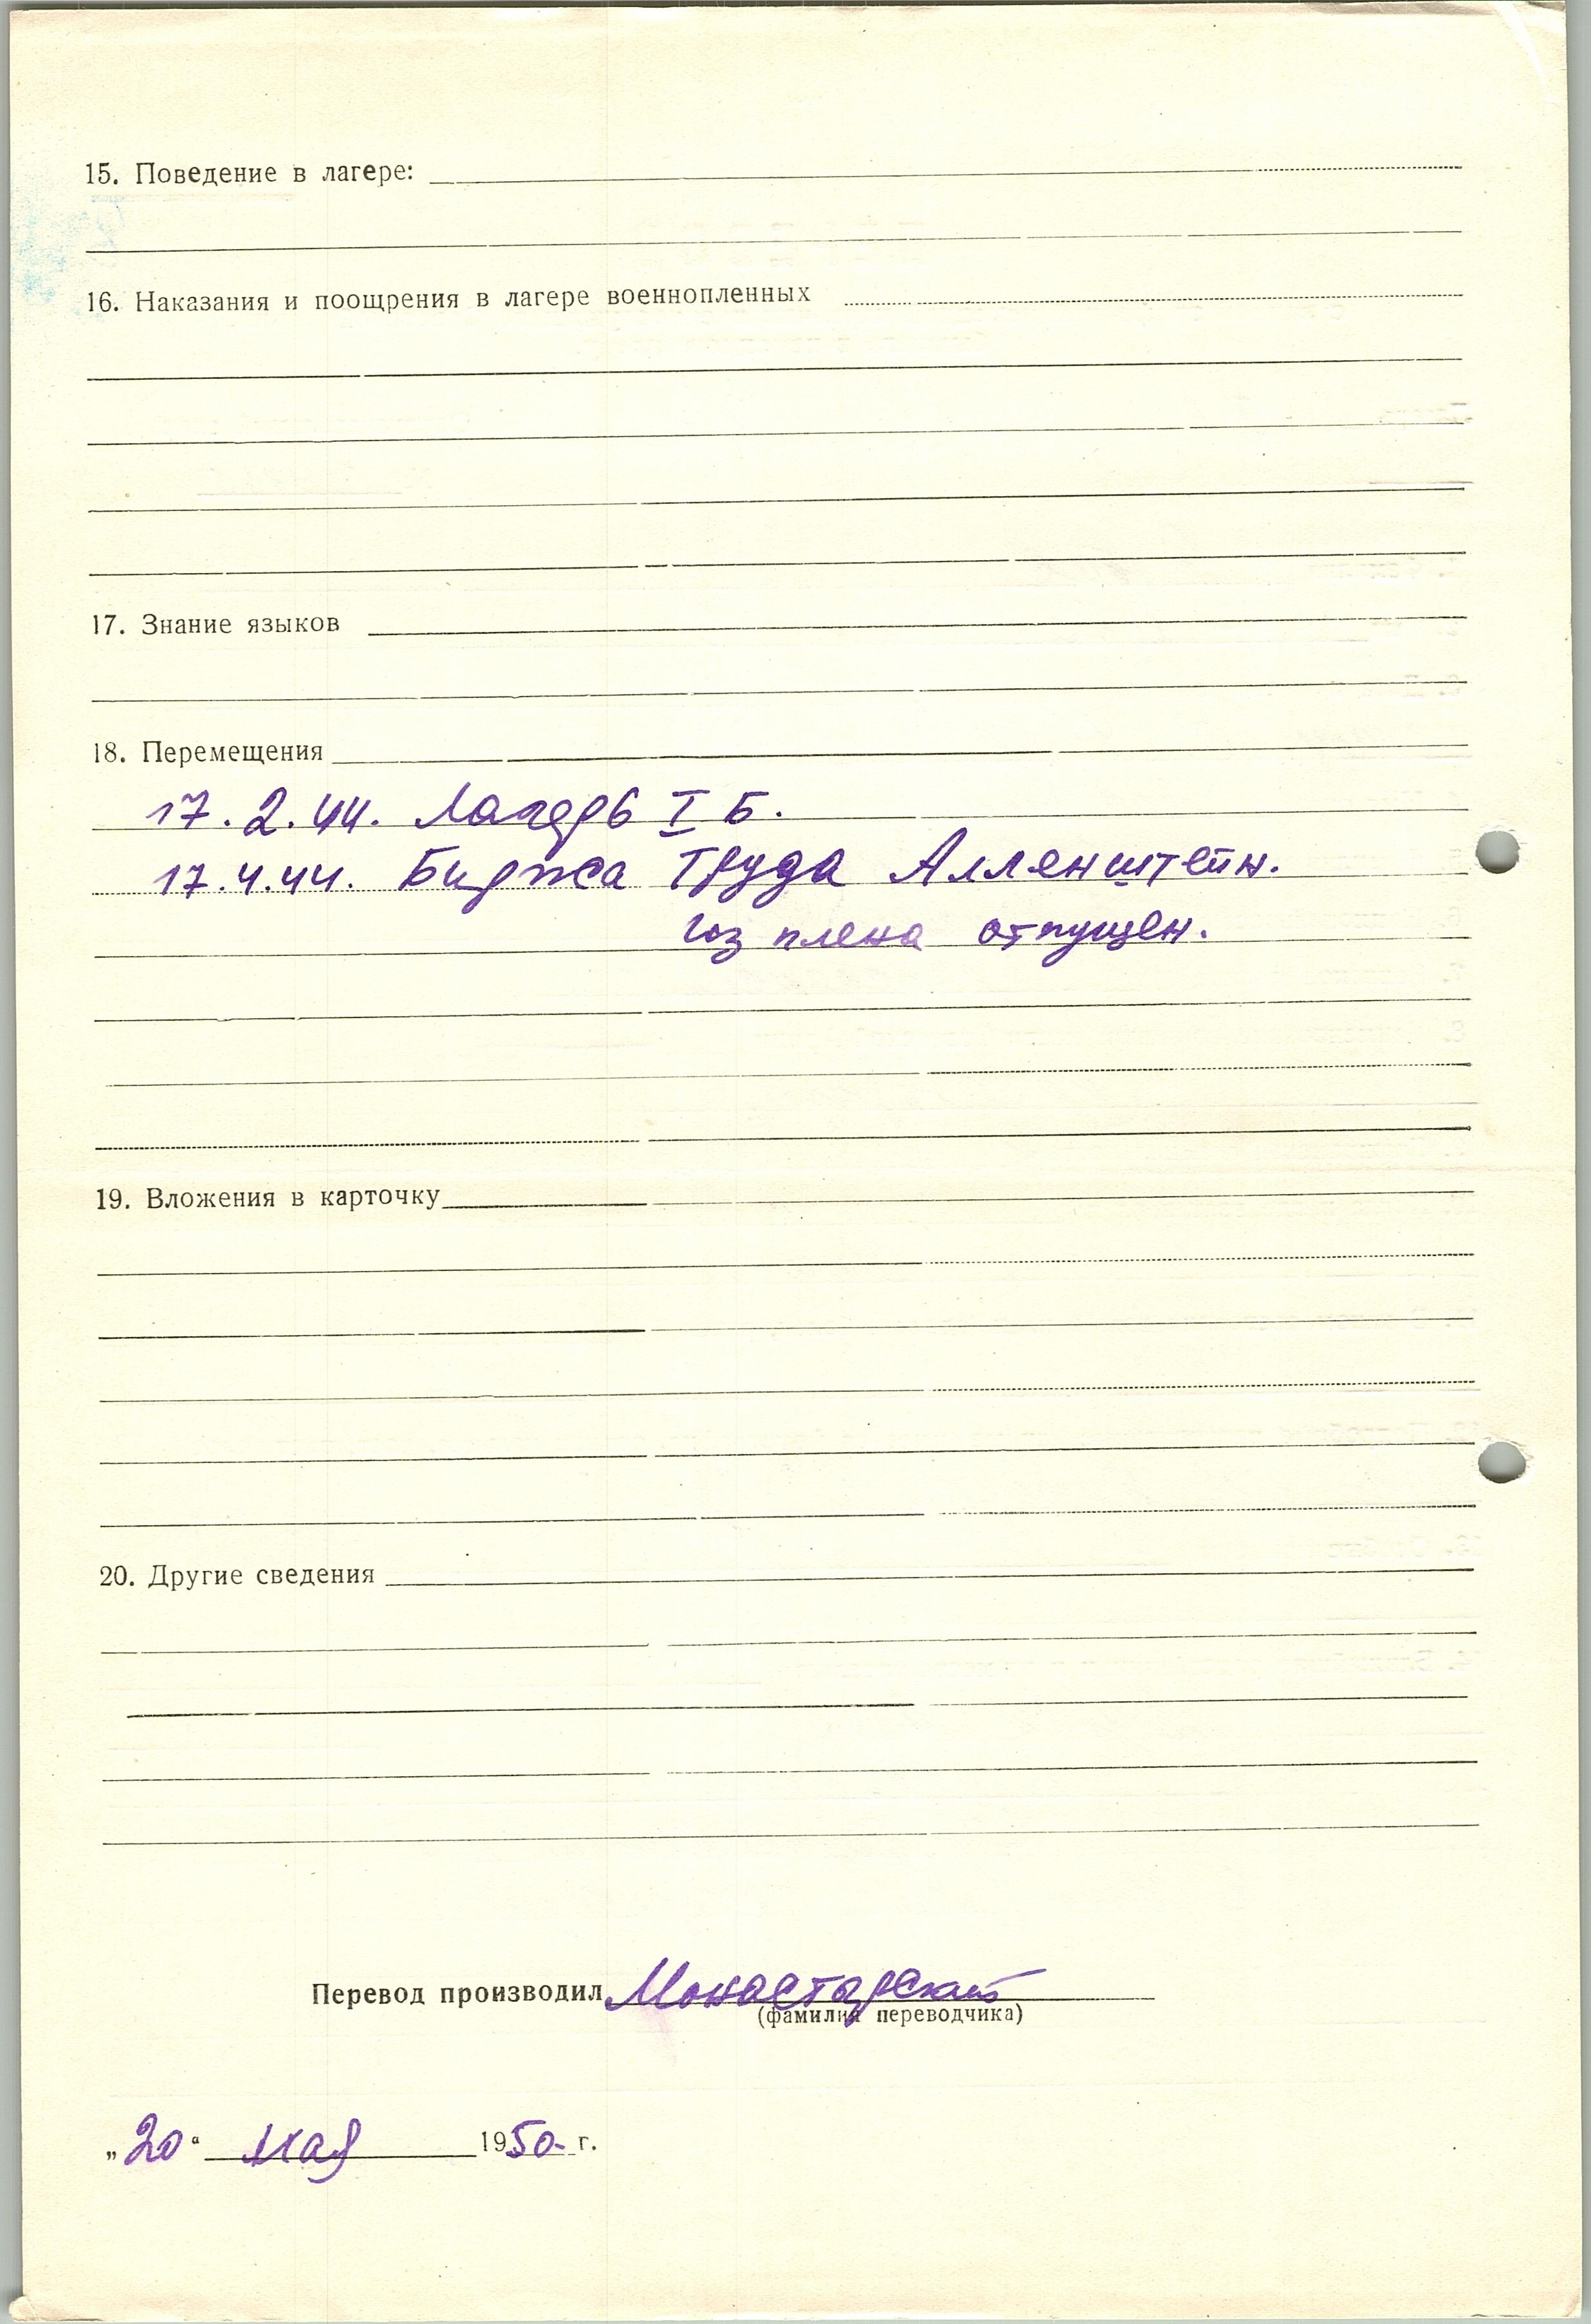 15. Поведение в лагере:
16. Наказания и поощрения в лагере военнопленных
17. Знание языков
18. Перемещения
17.2.44. Лагерь I Б.
17.4.44. Биржа Труда Алленштейн.
из плена отпущен.
19. Вложения в карточку
20. Другие сведения
Перевод производил Монастырский
(фамилия переводчика)
„20“ мая 1950 г.